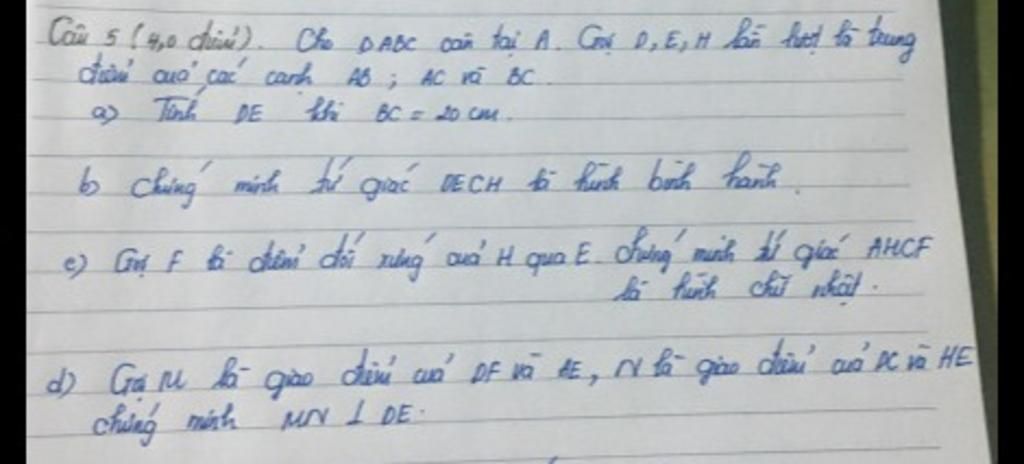 Câu 5 (4,0 điểm). Cho ΔABC cân tại A. Gọi D, E, H lần lượt là trung
điểm của các cạnh AB ; AC và BC.
a) Tính DE khi BC = 20 cm.
b) Chứng minh tứ giác DECH là hình bình hành.
c) Gọi F là điểm đối xứng của H qua E. Chứng minh tứ giác AHCF
là hình chữ nhật.
d) Gọi M là giao điểm của DF và AE, N là giao điểm của DC và HE
chứng minh MN ⊥ DE.